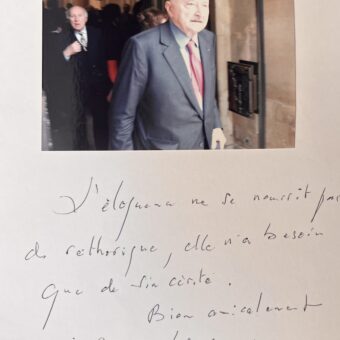 L'éloquence ne se nourrit pas
de rethorique, elle n'a besoin
que de sincérité.
Bien amicalement